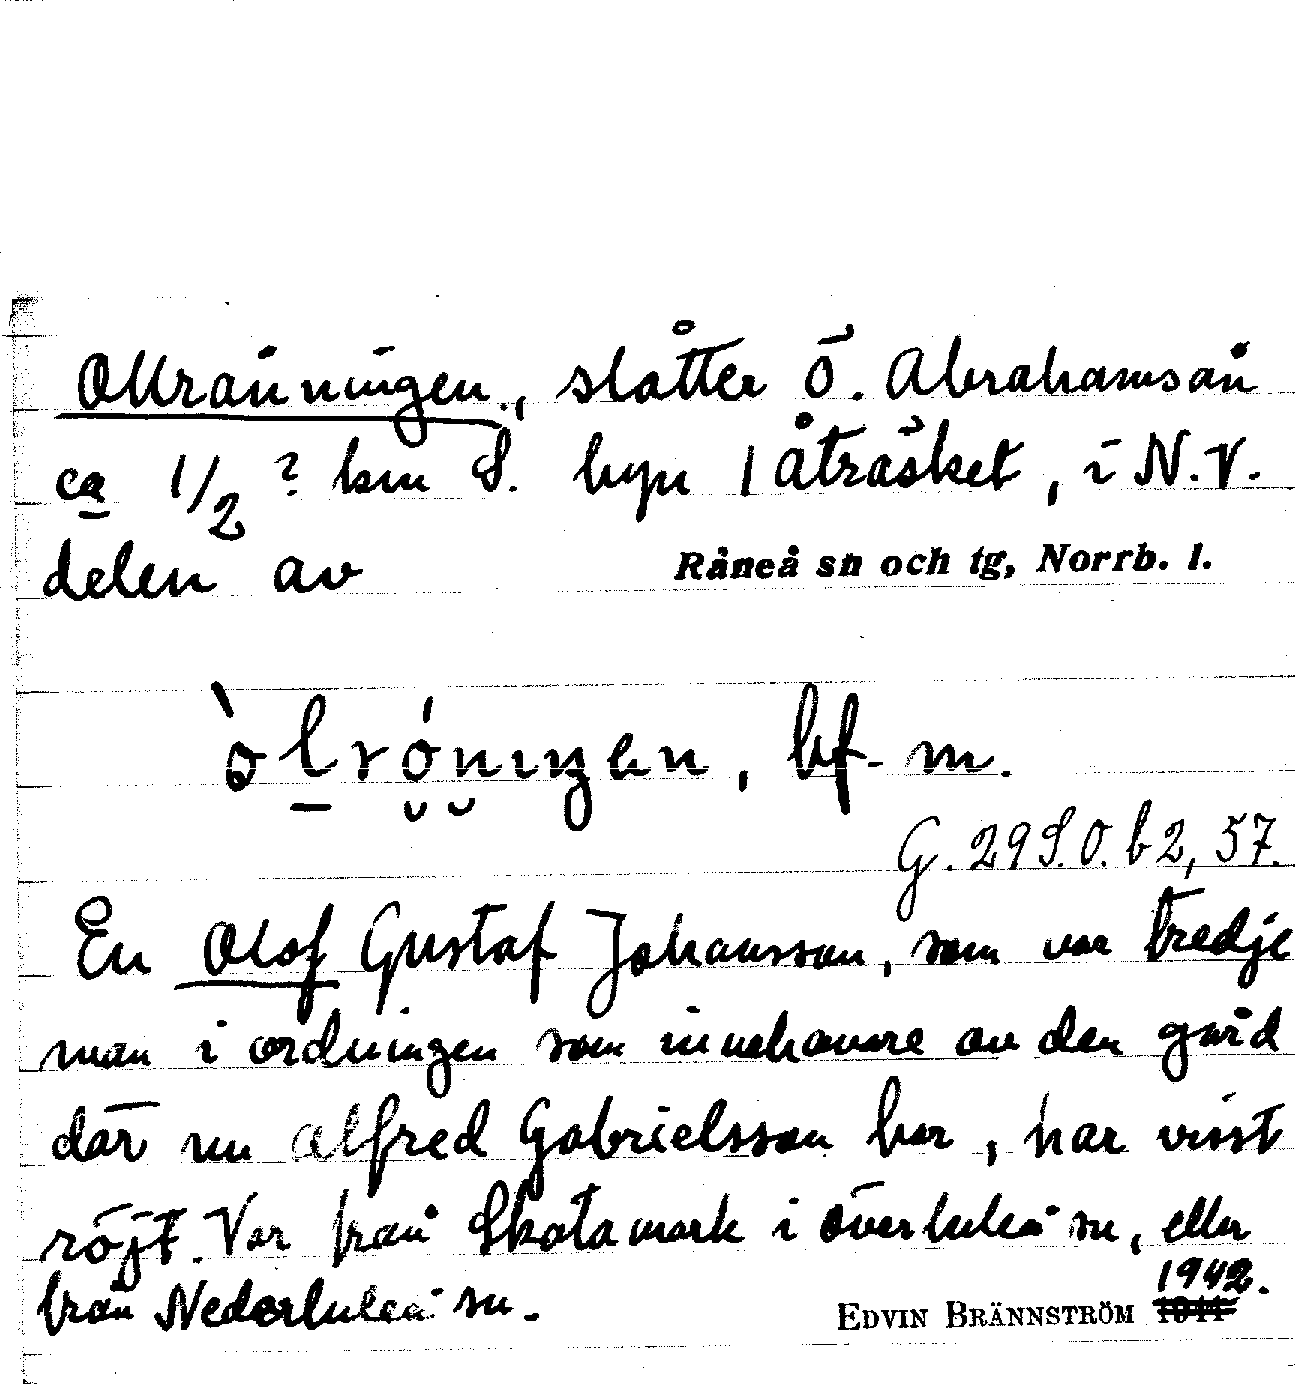 Ollråningen., slåtter Ö. Abrahamsån
ca 1/2 ? km S. byn Åträsket, i N.V.
delen av Råneå sn och tg, Norrb. l.
bf. m.
G. 29 S.O. b 2, 57.
En Olof Gustaf Johansson, som var tredje
man i ordningen som innehavare av den gård
där nu Alfred Gabrielsson bor, har visst
röjt. Var från Skatamark i överluleå sn, eller
från Nederluleå sn.
EDVIN BRÄNNSTRÖM 1942.
1941